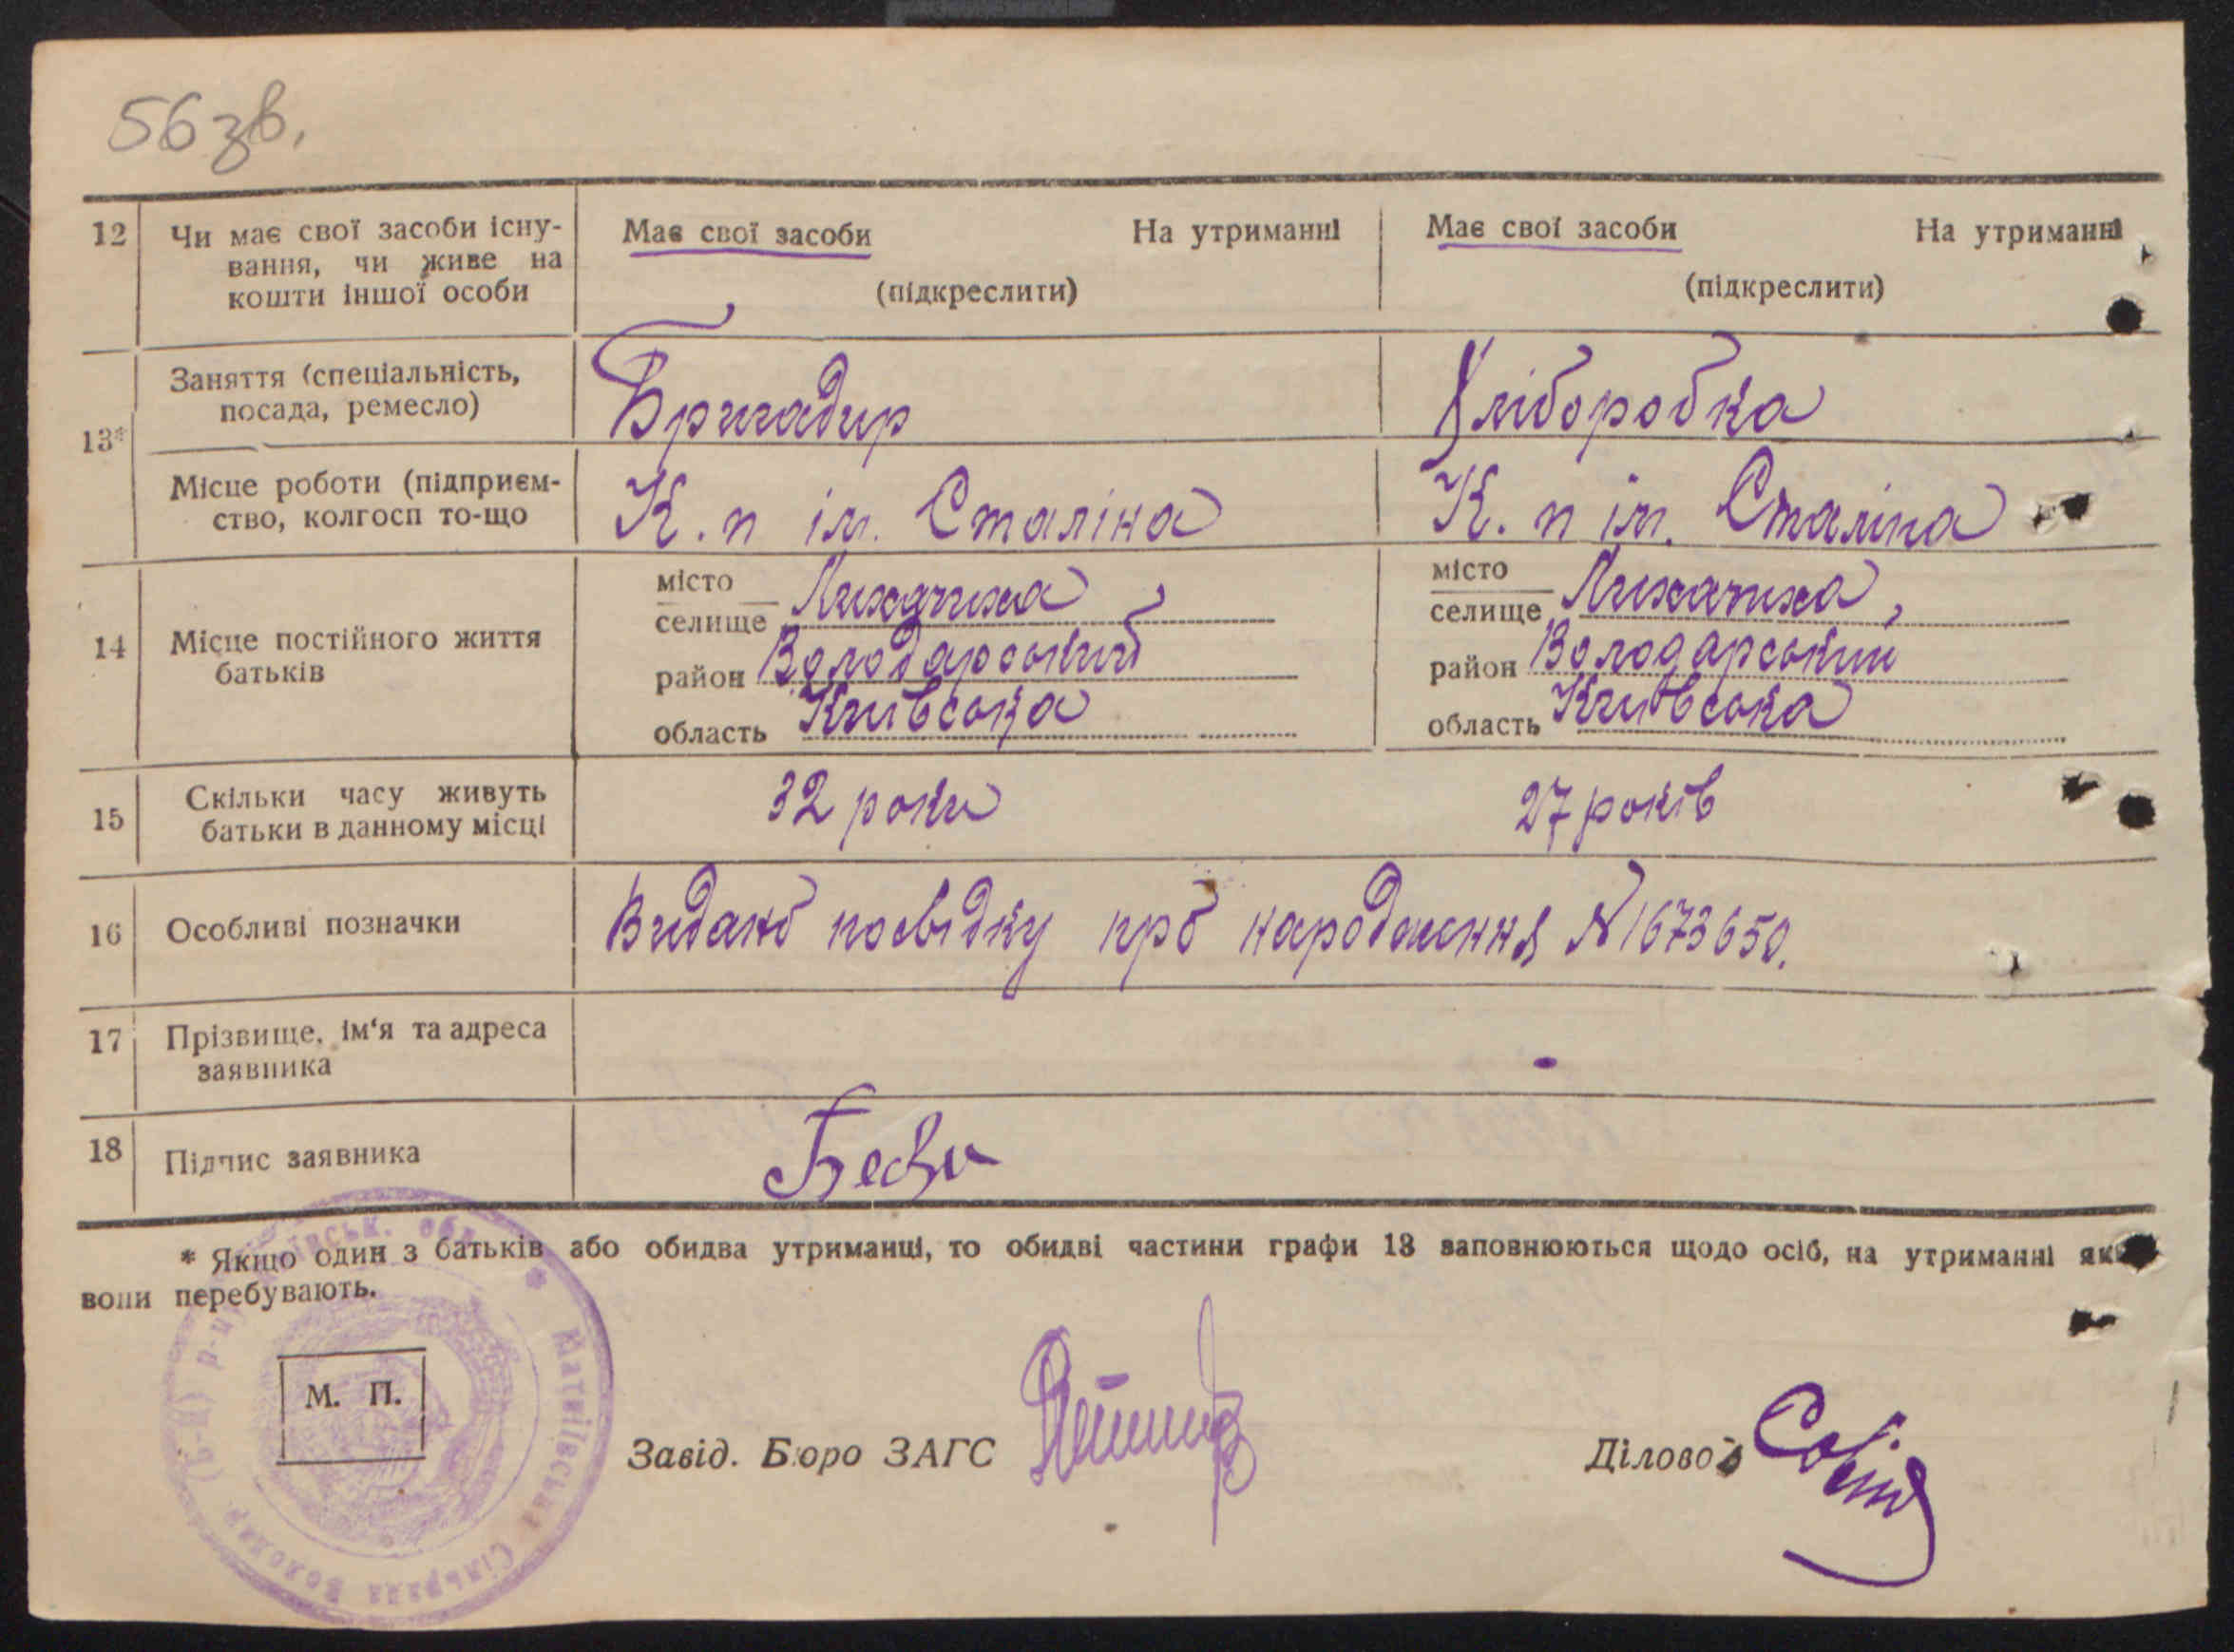 56 зв.
12 Чи має свої засоби існу-
вання, чи живе на
кошти іншої особи
Має свої засоби На утриманні
(підкреслити)
Має свої засоби На утриманні
(підкреслити)
13*
Заняття (спеціальність,
посада, ремесло)
Бригадир
Хліборобка
Місце роботи (підприєм-
ство, колгосп то-що
К. п ім. Сталіна
К. п ім. Сталіна
14 Місце постійного життя
батьків
місто
селище Лихачиха,
район Володарський
область Київська
місто
селище Лихачиха,
район Володарський
область Київська
15 Скільки часу живуть
батьки в данному місці
32 роки
27 років
16 Особливі позначки
Видано посвідку про народження № 1673650.
17 Прізвище, ім‘я та адреса
заявника
-
18 Підпис заявника
* Якщо один з батьків або обидва утриманці, то обидві частини графи 13 заповнюються щодо осіб, на утриманні як
вони перебувають.
М. П.
Завід. Бюро ЗАГС
Діловод
Матвіївська Сільрада Володар